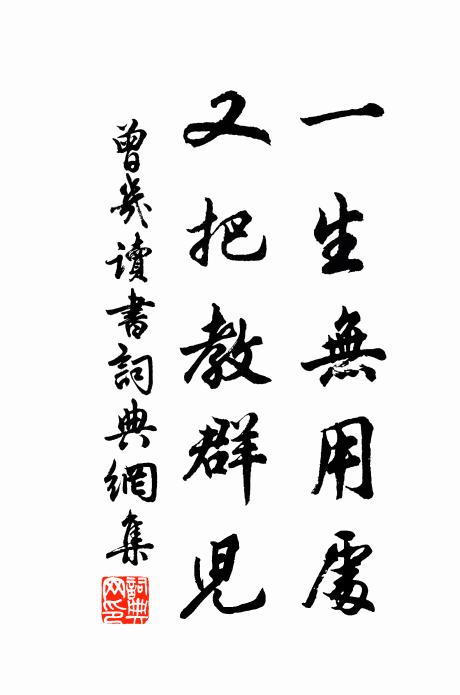 一生無用處
又把教群兒
曾幾讀書詞典網集
詞典網印